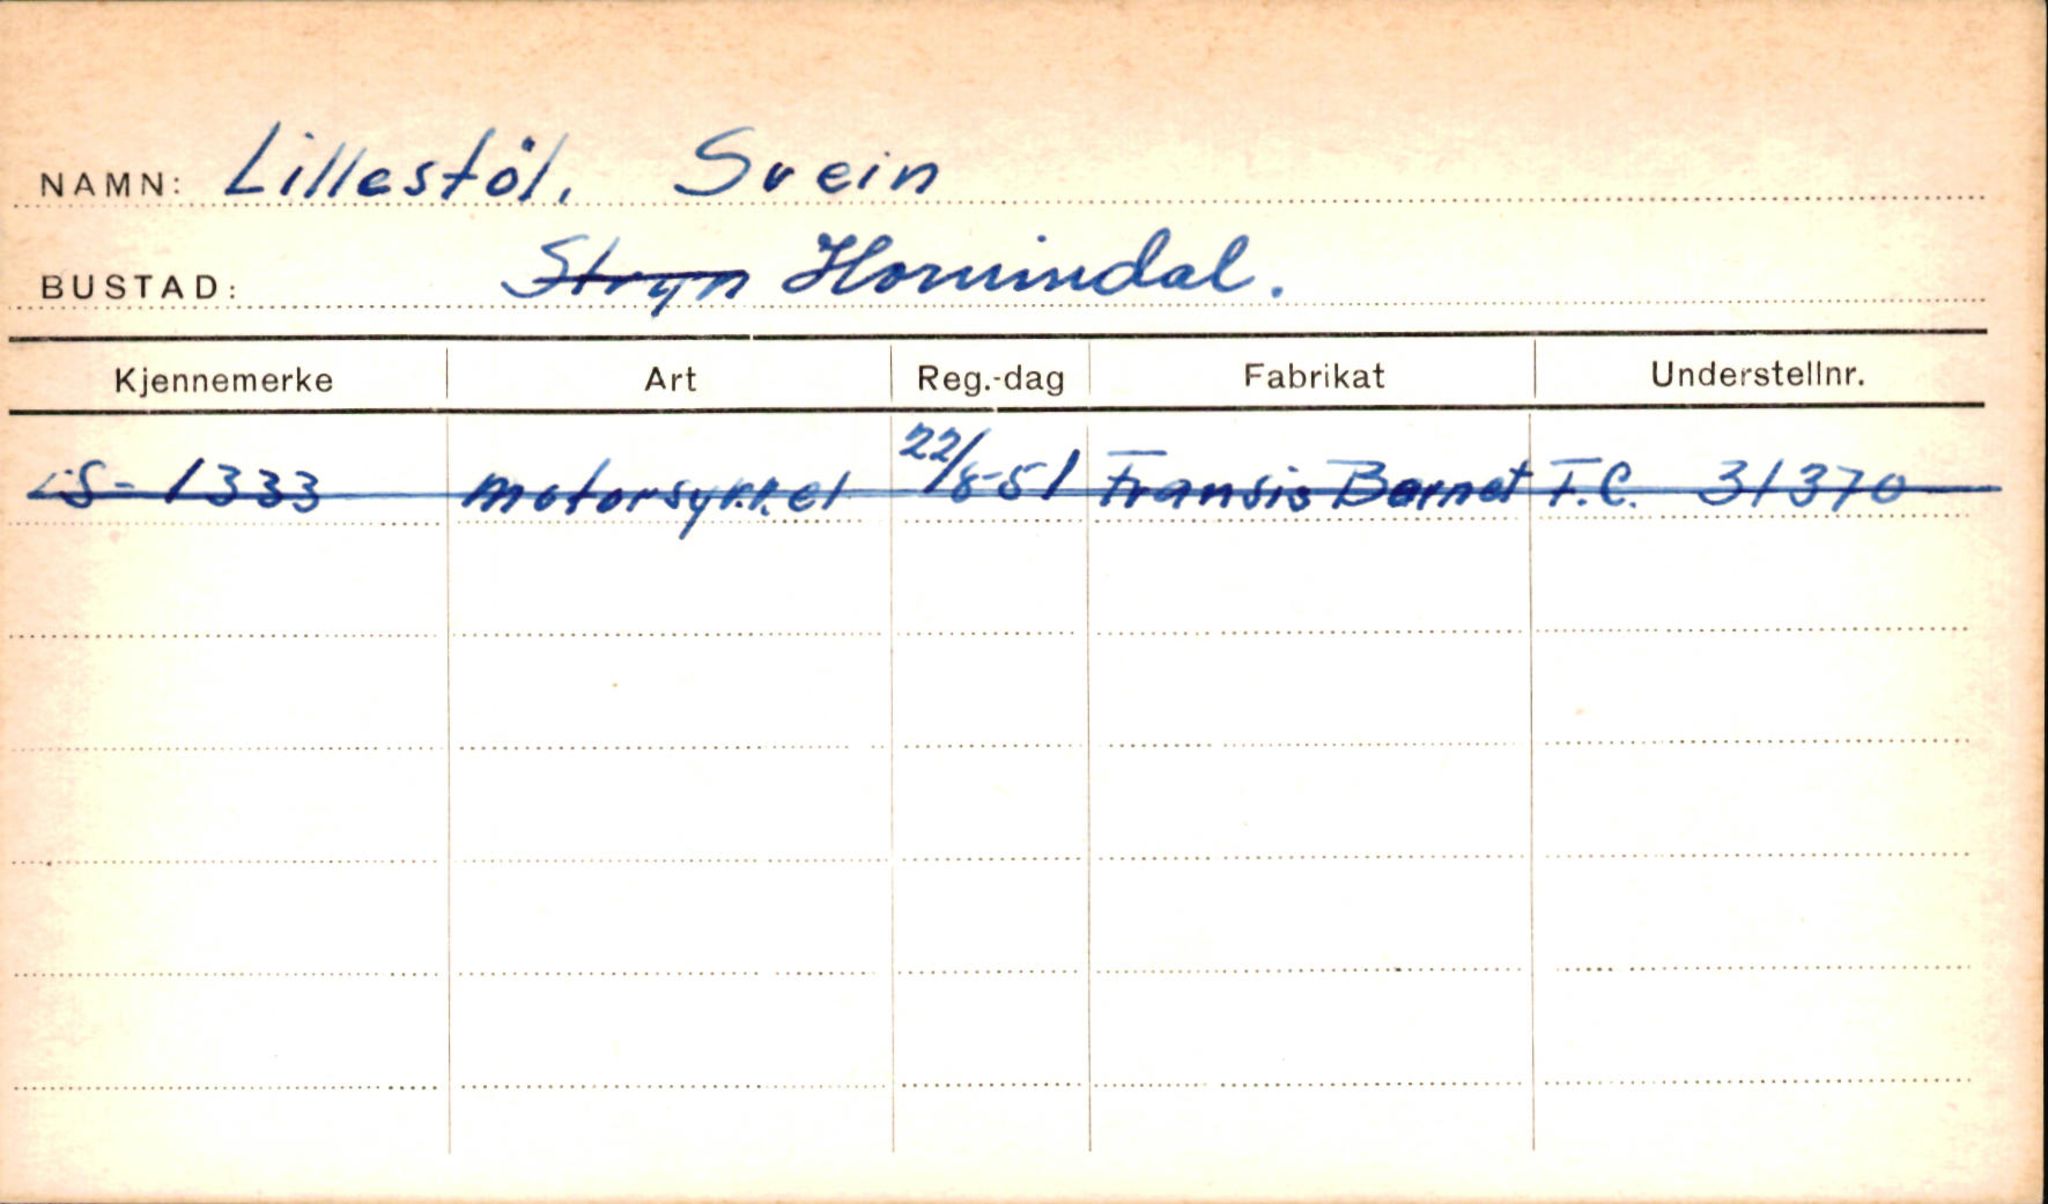 NAMN: Lillestöl, Svein
BUSTAD: Stryn Hornindal.
Kjennemerke Art Reg.-dag Fabrikat Understellnr.
S- 1333 motorsykkel 22/8-51 Fransis Barnet F.C. 31370